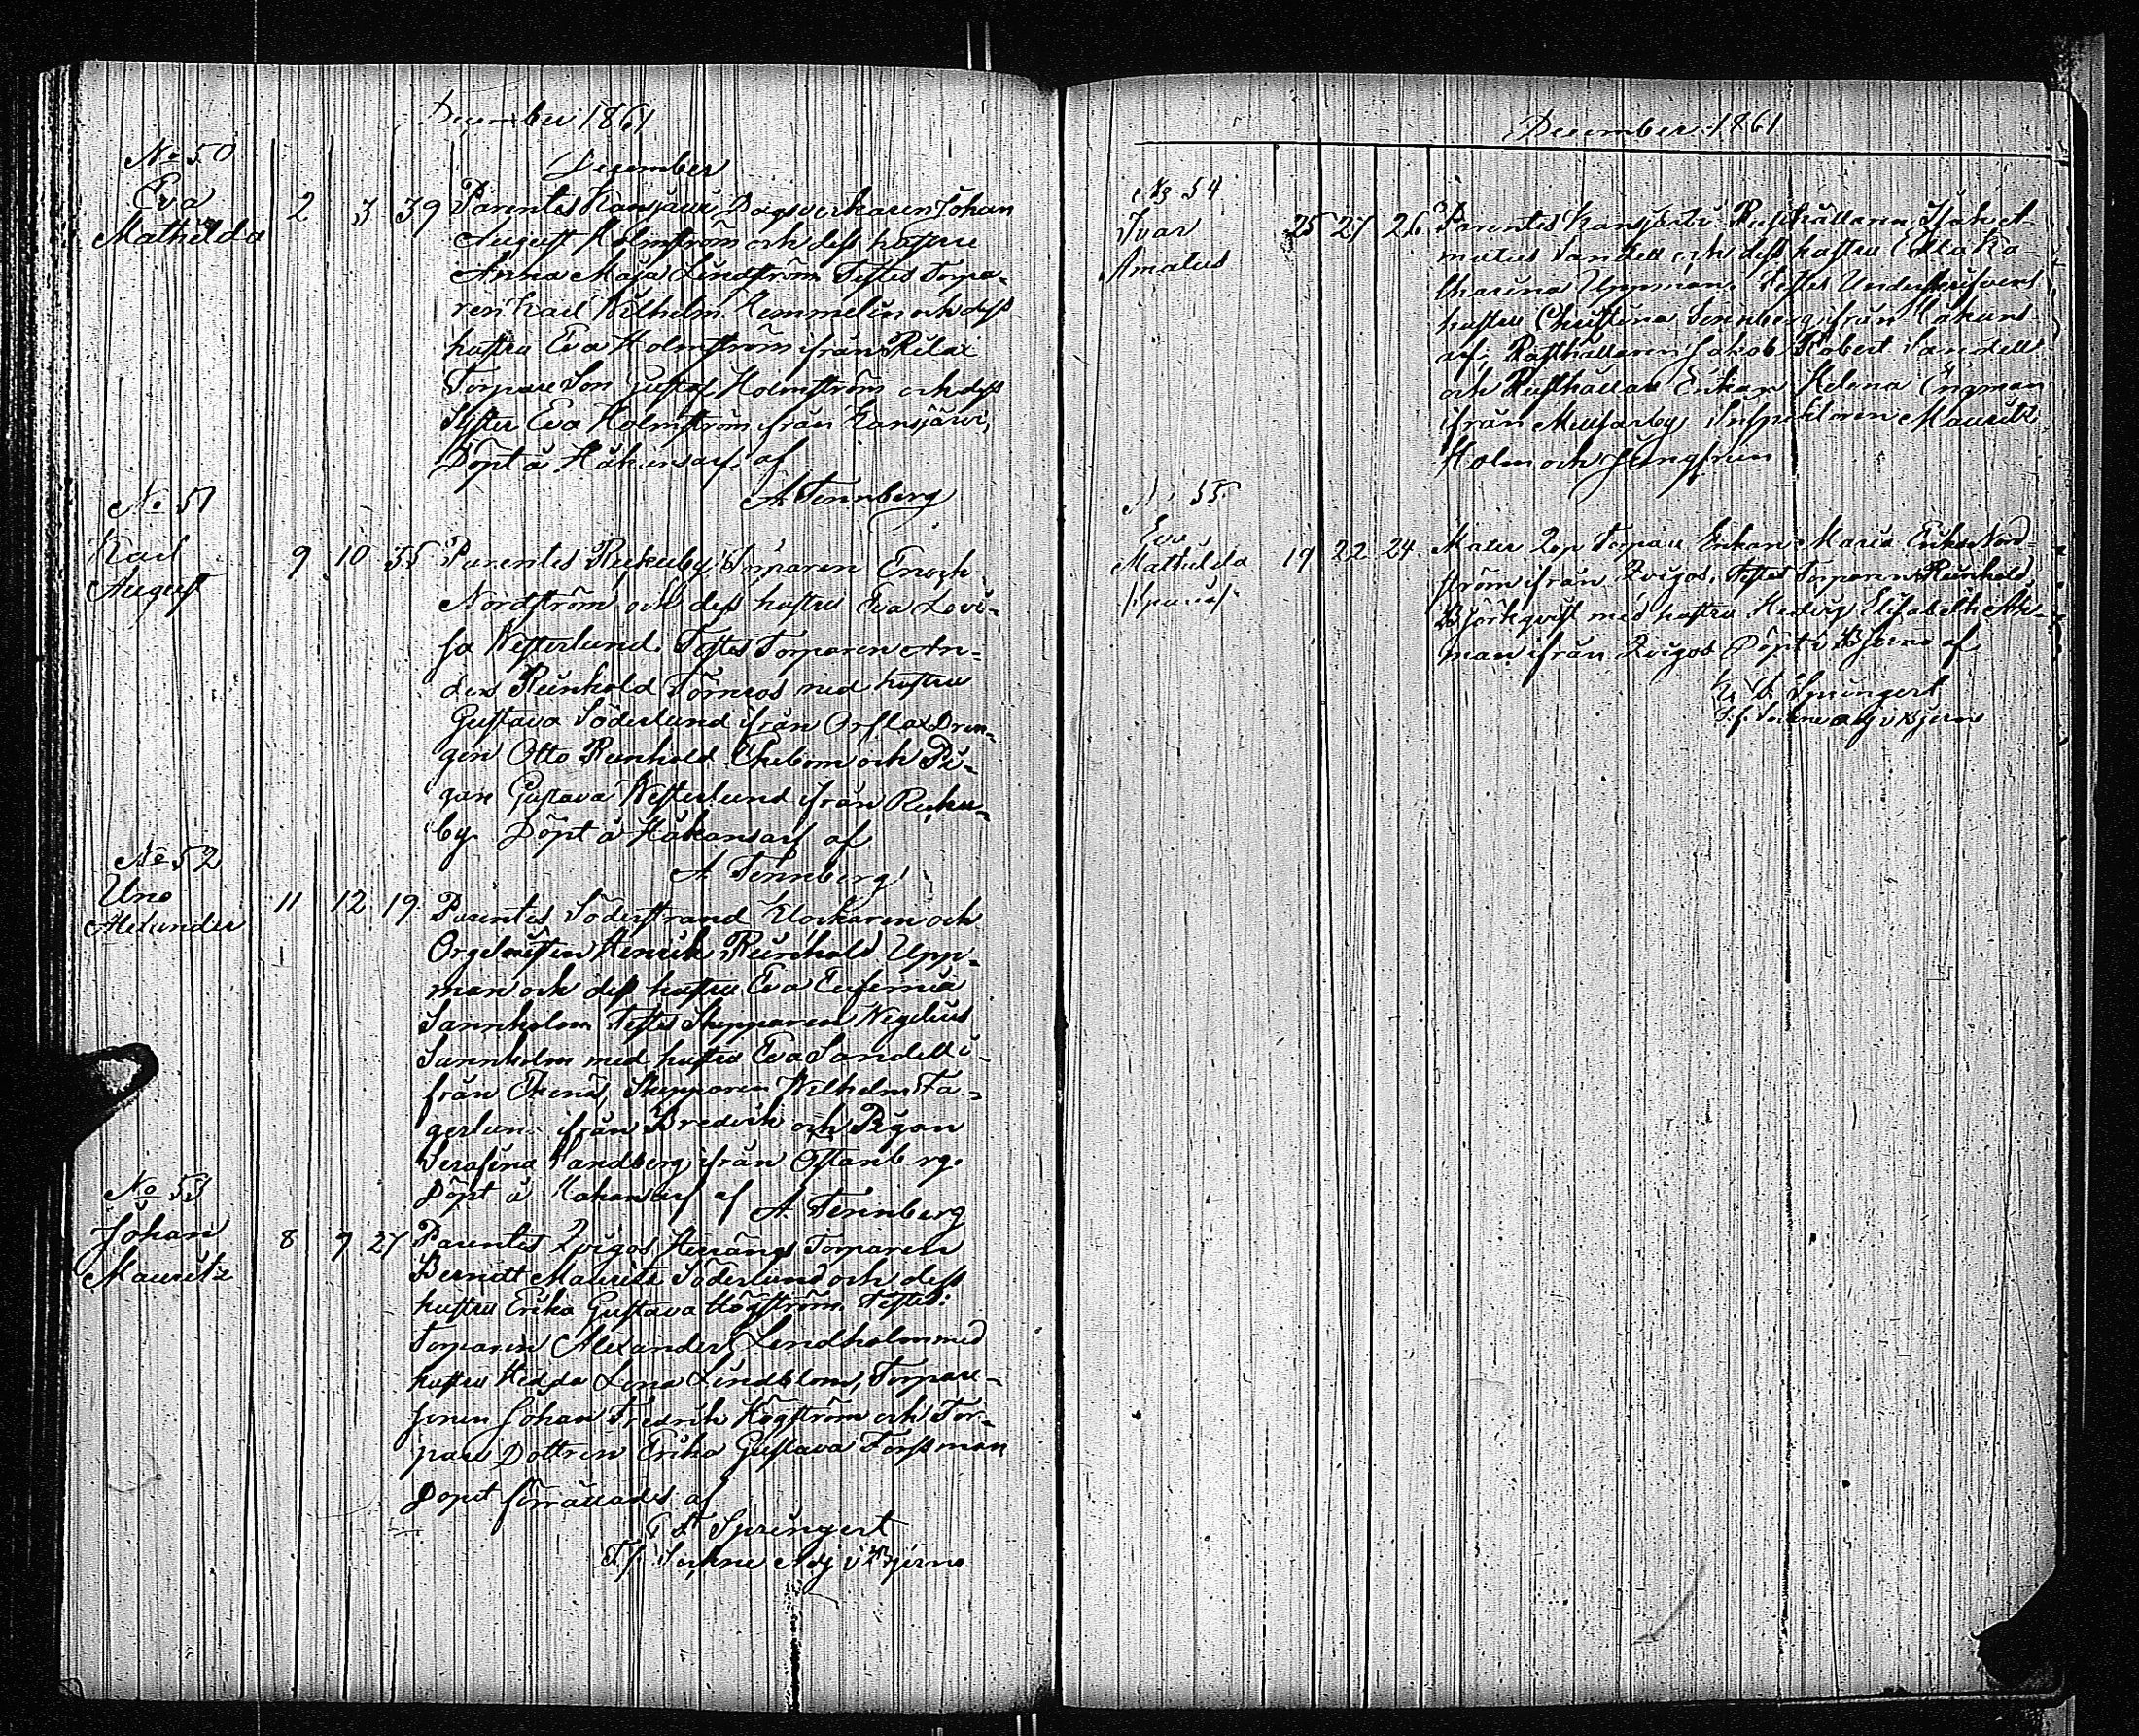 December 1861
December
No 50
Eva
Mathilda
2 3 39
Parentes Dagsverkaren Johan
August Holmström och dess hustru
Anna Maja Lindström Testes Torpa-
ren Karl Wilhelm och dess
hustru Eva Holmström ifrån Rilax
Torpare Son Gustaf Holmström och dess
Syster Eva Holmström ifrån
Döpt å Håkansarf af
A. Tennberg
No 51
Karl
August
9 10 35
Parentes Torparen Enoch
Nordström och dess hustru Eva Lovi-
sa Westerlund. Testes Torparen An-
ders Reinhold Törnros med hustru
Gustava Söderlund ifrån Dren-
gen Otto Reinhold och Pi-
gan Gustava Westerlund ifrån
by Döpt å Håkansarf af
A. Tennberg
No 52
Uno
Alexander
11 12 19
Parentes Söderstrand Klockaren och
Orgelnisten Henrik Reinhold Upp-
man och dess hustru Eva Eufemia
Sannholm Testes Skepparen Wigelius
Sannholm med hustru Eva Sandell i-
från Ekenäs, Skepparen Wilhelm Fa-
gerlun ifrån och Pigan
Serafina Sandberg ifrån
Döpt å Håkansarf af
A. Tennberg
No 53
Johan
Mauritz
8 9 27
Parentes Zvigos Torparen
Berndt Mauritz Söderlund och dess
hustru Erika Gustava Högström Testes:
Torparen Alexander Lindholm med
hustru Hedda Lena Lindblom, Torpare-
sonen Johan Fredrik Högström och Tor-
pare Dottren Erika Gustava Forssman
Dopet förrättades af
Springert
T.f. Sockne Adj i Bjerno
December 1861
No 54
Ivar
Amatus
25 27 26
Parentes Rusthållaren Isak A-
matus Sandell och dess hustru Edla Ka-
tharina Uppman. Testes Underskrifvens
hustru Christina Tennberg ifrån Håkans-
arf, Rusthållaren Jakob Robert Sandell
och Rusthållare Enkan Helena Engman
ifrån Inspektoren Mauritz
Holm och Jungfrun
No 55
Eva
Mathilda
19 22 24
Mater Torpare Enkan Maria Erika Nord-
ström ifrån Zvigos. Testes Torparen Reinhold
Björkqvist med hustru Hedvig Elisabeth
man ifrån Zvigos Döpt i Bjerno af
Springert
T.f. Sockne adj i Bjerno